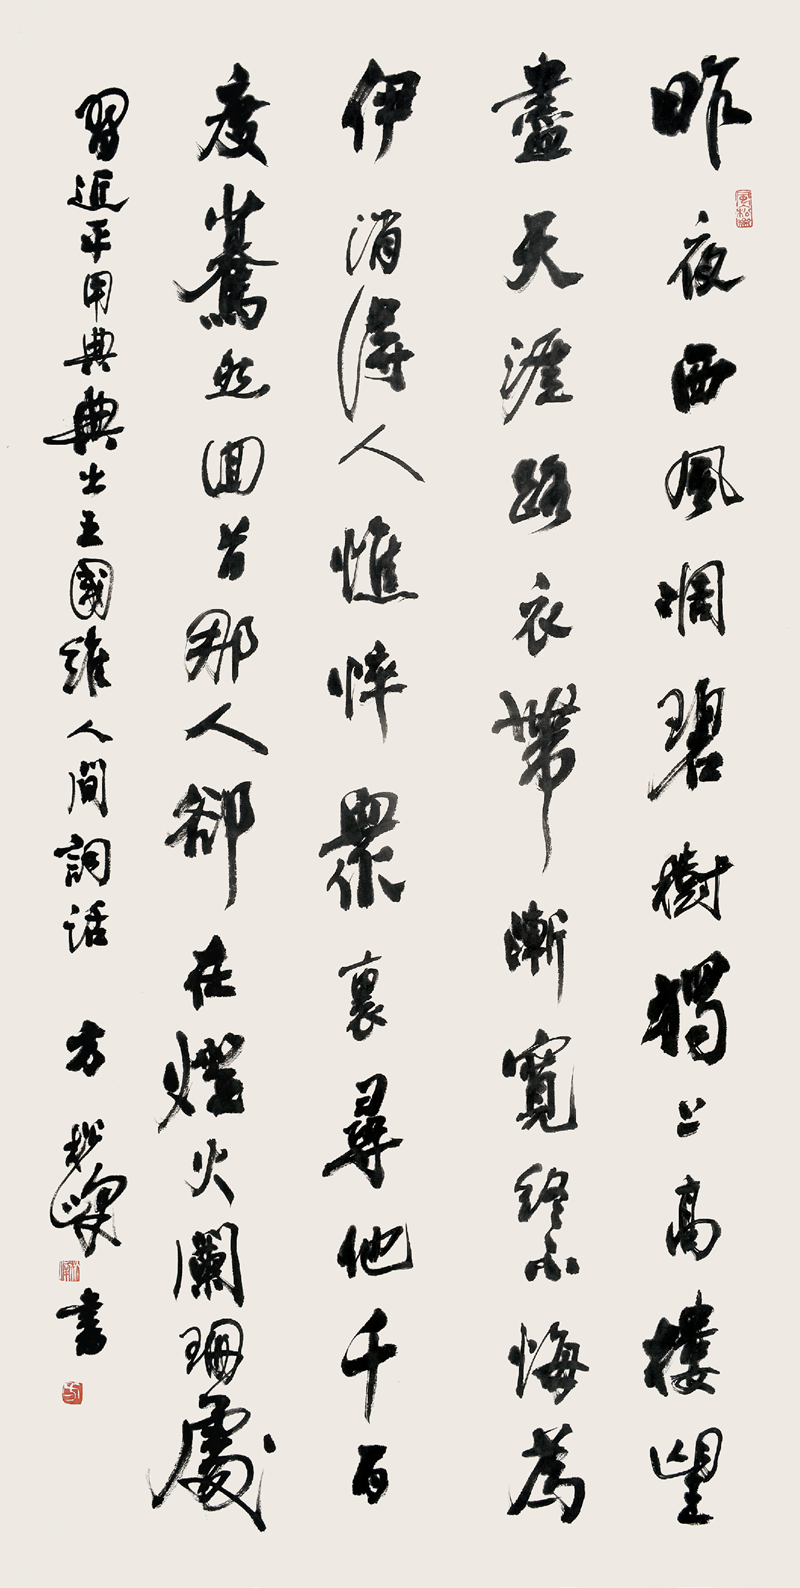 昨夜西風凋碧樹獨上高樓望
盡天涯路衣帶漸寬終不悔為
伊消得人憔悴眾裏尋他千百
度驀然回首那人卻在燈火闌珊處
習近平用典典出王國維人間詞話 方松書